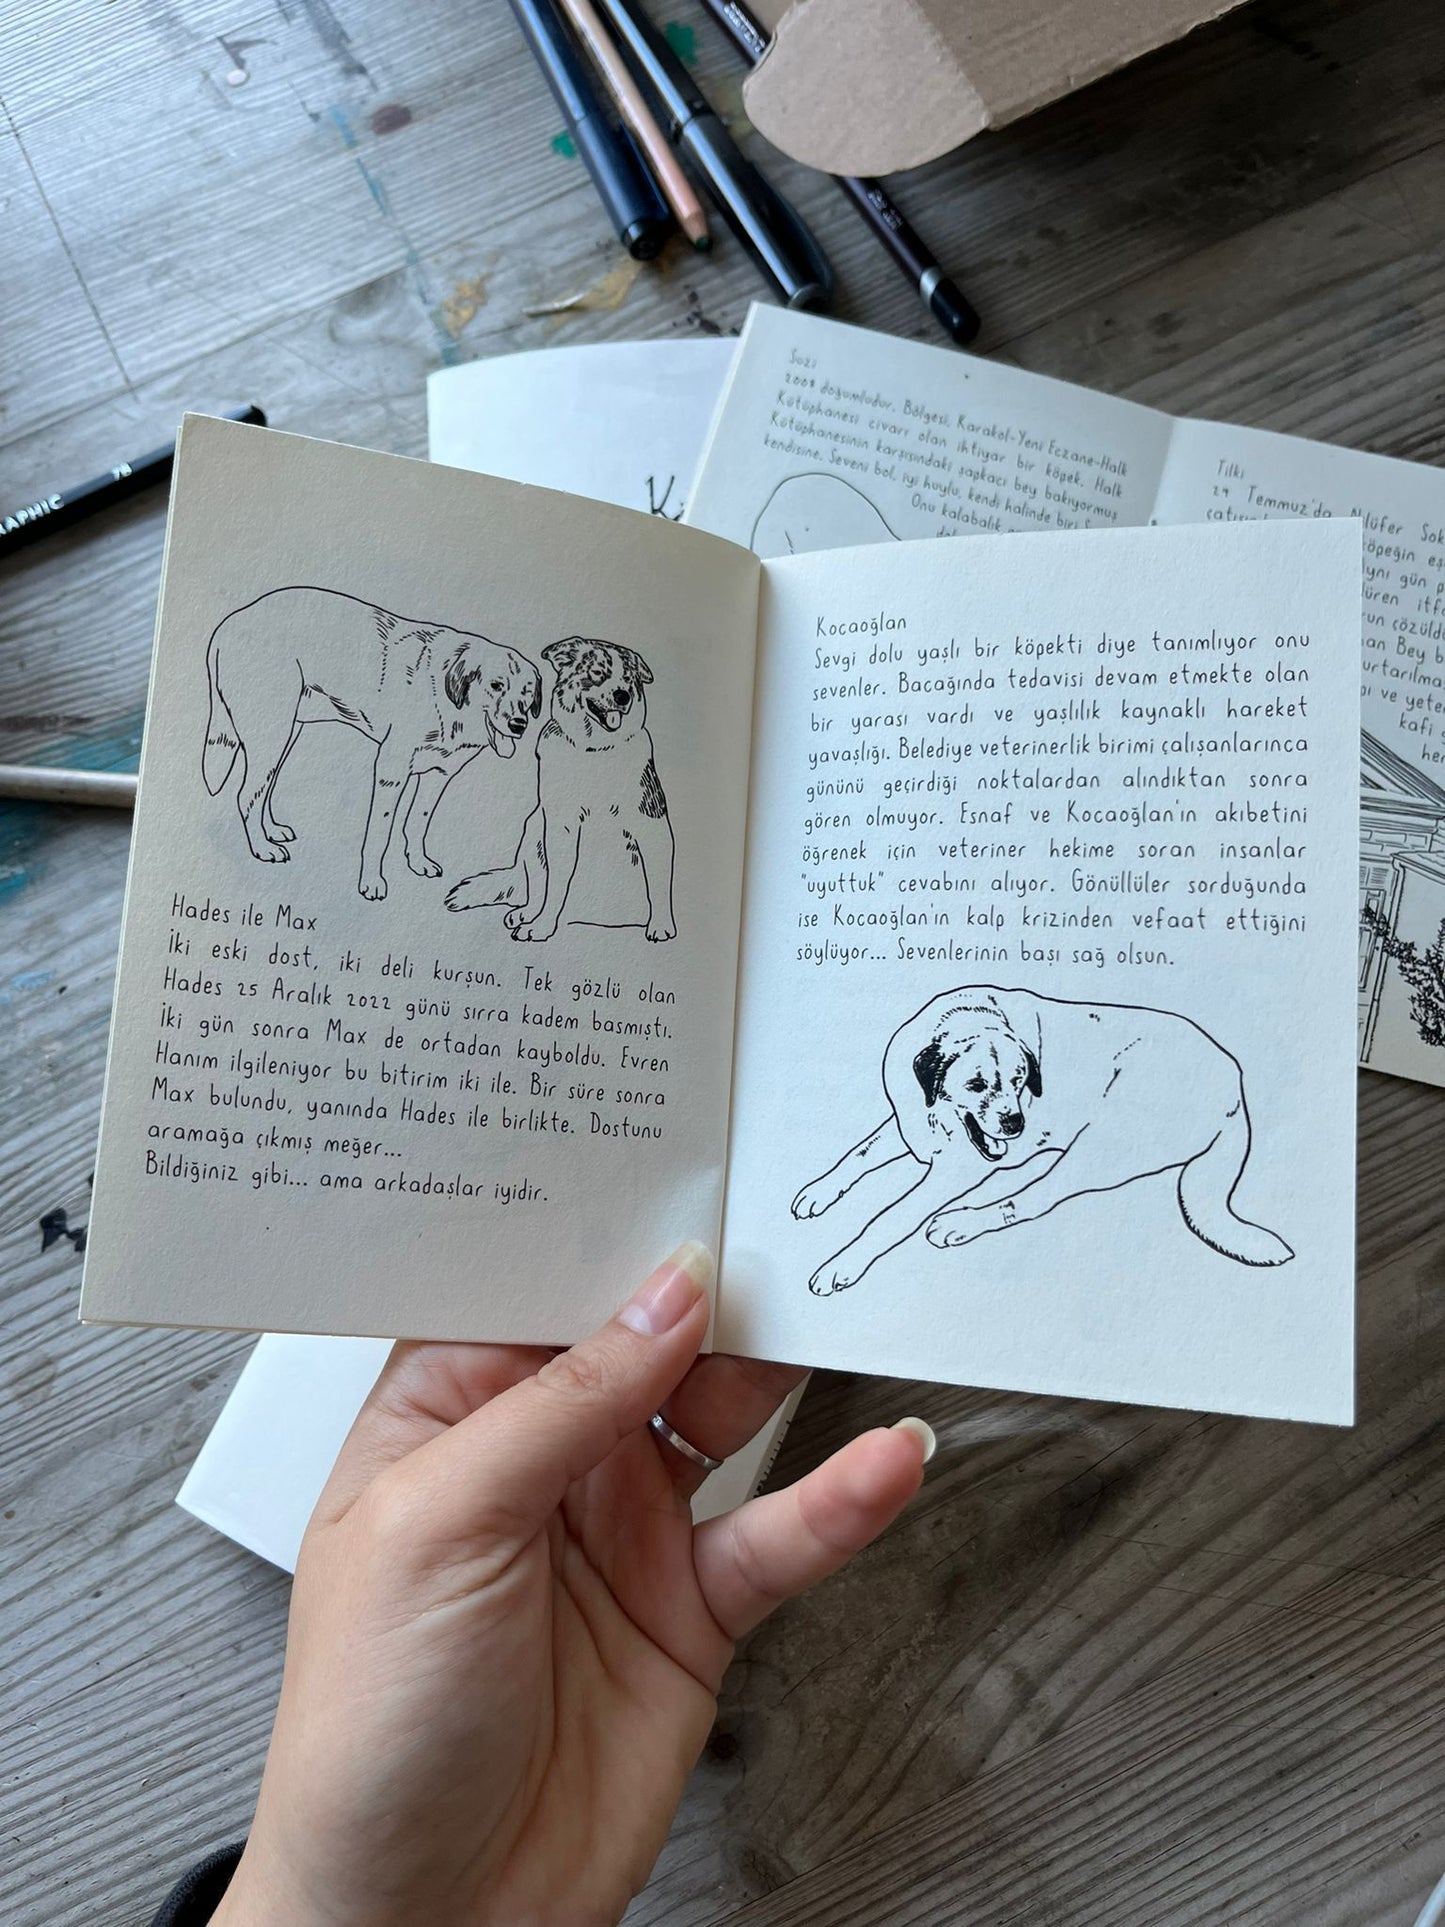 GRAPHIC 7B
Suzi
2008 doğumludur. Bölgesi, Karakol-Yeni Eczane-Halk
Kütüphanesi civarı olan ihtiyar bir köpek. Halk
Kütüphanesinin karşısındaki şapkacı bey bakıyormuş
kendisine. Seveni bol, iyi huylu, kendi halinde biri
Onu kalabalık
Tilki
29 Temmuz'da Nilüfer Sok
köpeğin
aynı gün
itf
çözüld
Bey
urtarılma
ve yete
kafi
her
Hades ile Max
İki eski dost, iki deli kurşun. Tek gözlü olan
Hades 25 Aralık 2022 günü sırra kadem basmıştı.
İki gün sonra Max de ortadan kayboldu. Evren
Hanım ilgileniyor bu bitirim iki ile. Bir süre sonra
Max bulundu, yanında Hades ile birlikte. Dostunu
aramağa çıkmış meğer...
Bildiğiniz gibi... ama arkadaşlar iyidir.
Kocaoğlan
Sevgi dolu yaşlı bir köpekti diye tanımlıyor onu
sevenler. Bacağında tedavisi devam etmekte olan
bir yarası vardı ve yaşlılık kaynaklı hareket
yavaşlığı. Belediye veterinerlik birimi çalışanlarınca
gününü geçirdiği noktalardan alındıktan sonra
gören olmuyor. Esnaf ve Kocaoğlan'ın akıbetini
öğrenek için veteriner hekime soran insanlar
"uyuttuk" cevabını alıyor. Gönüllüler sorduğunda
ise Kocaoğlan'ın kalp krizinden vefaat ettiğini
söylüyor... Sevenlerinin başı sağ olsun.